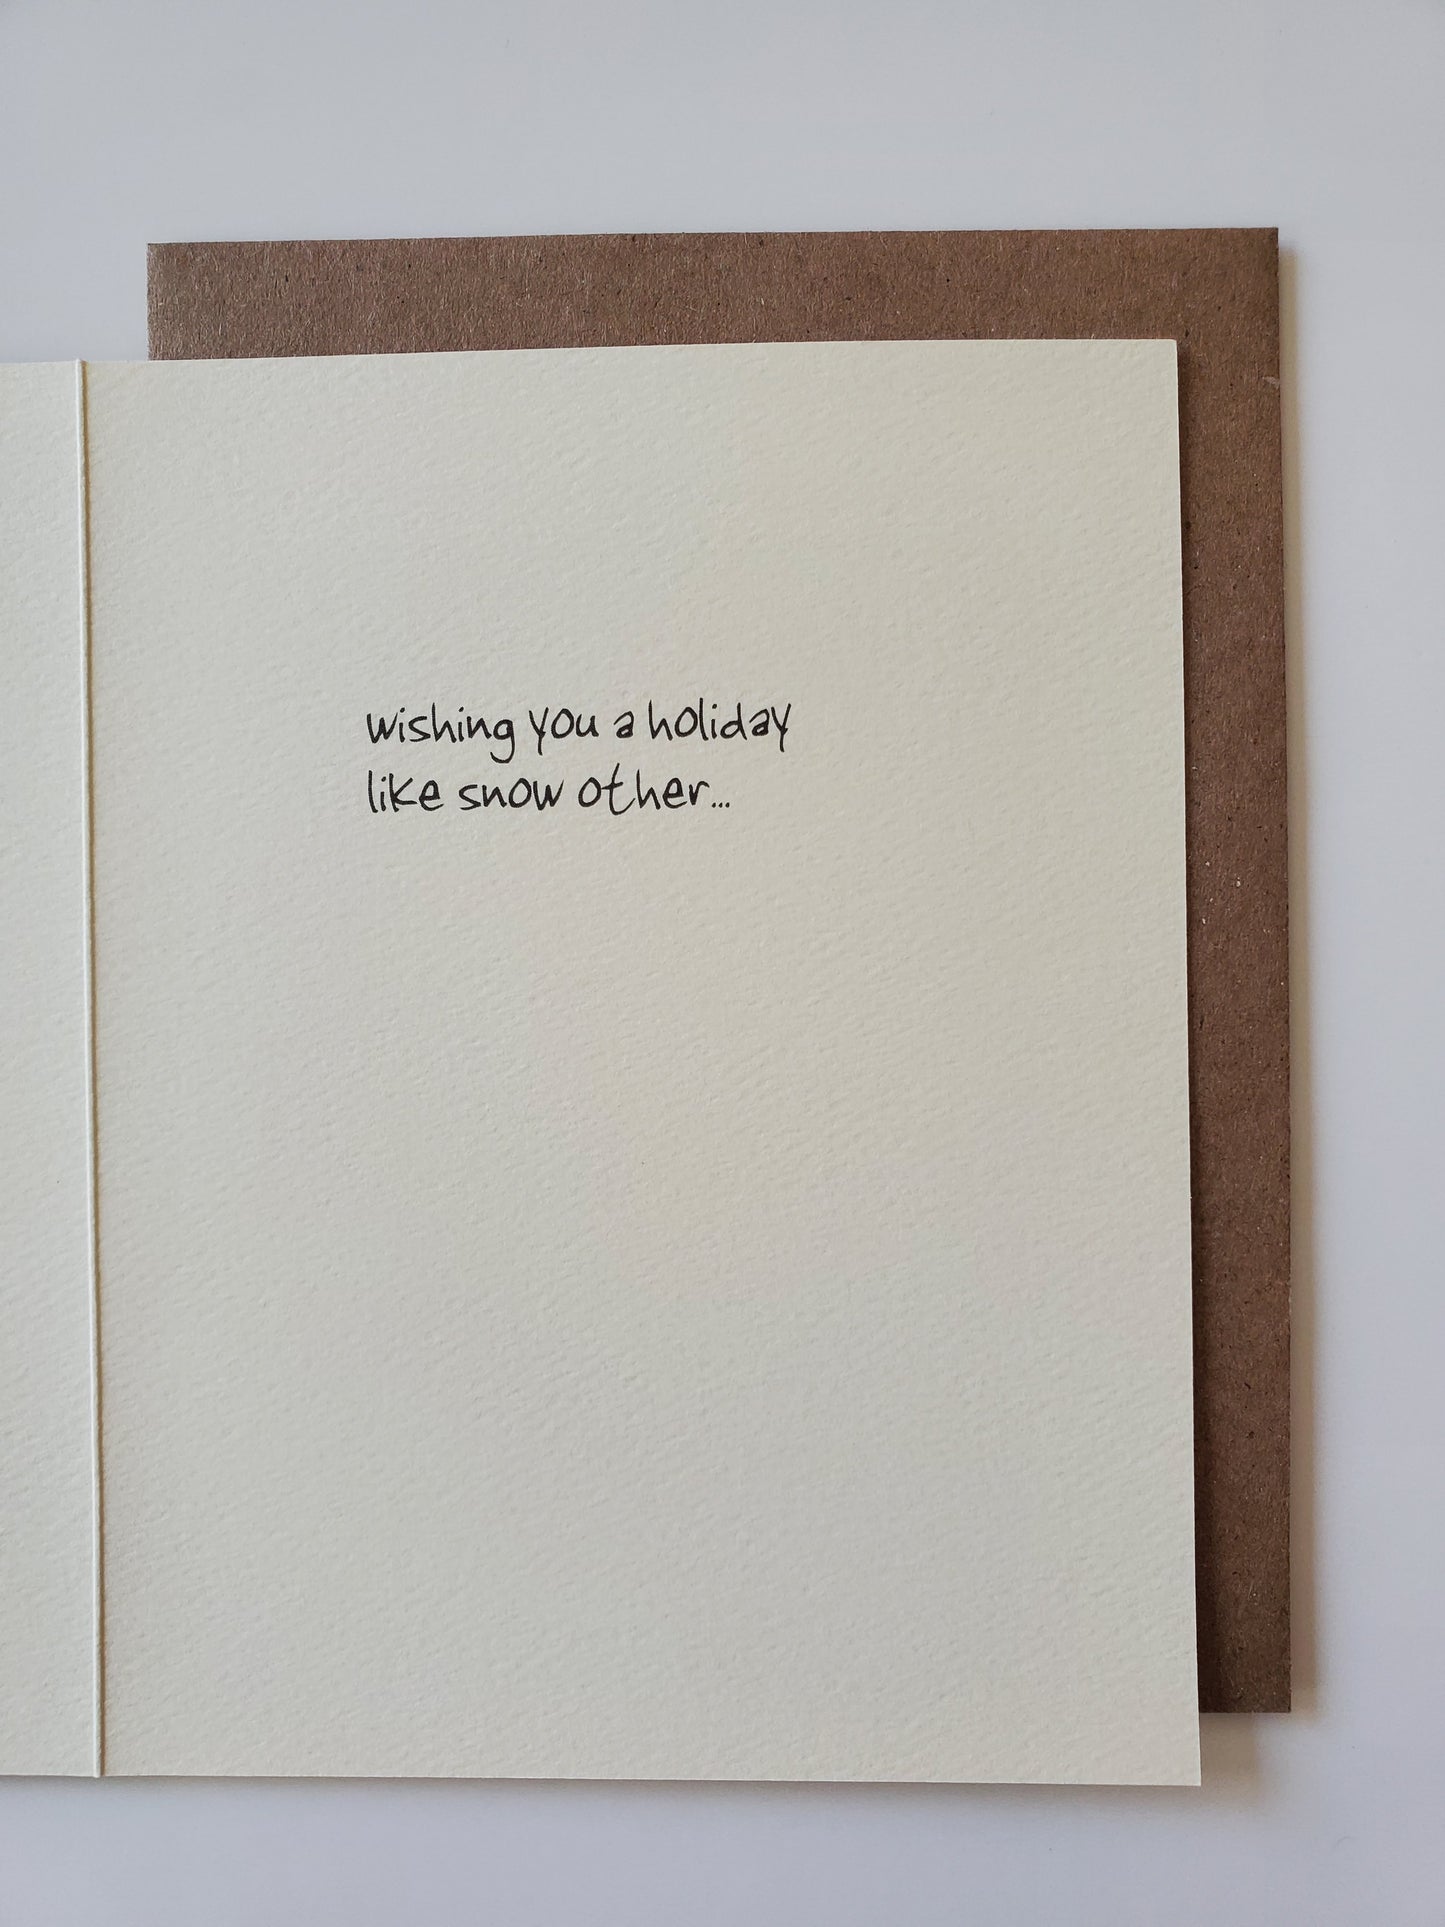 wishing you a holiday
like snow other...